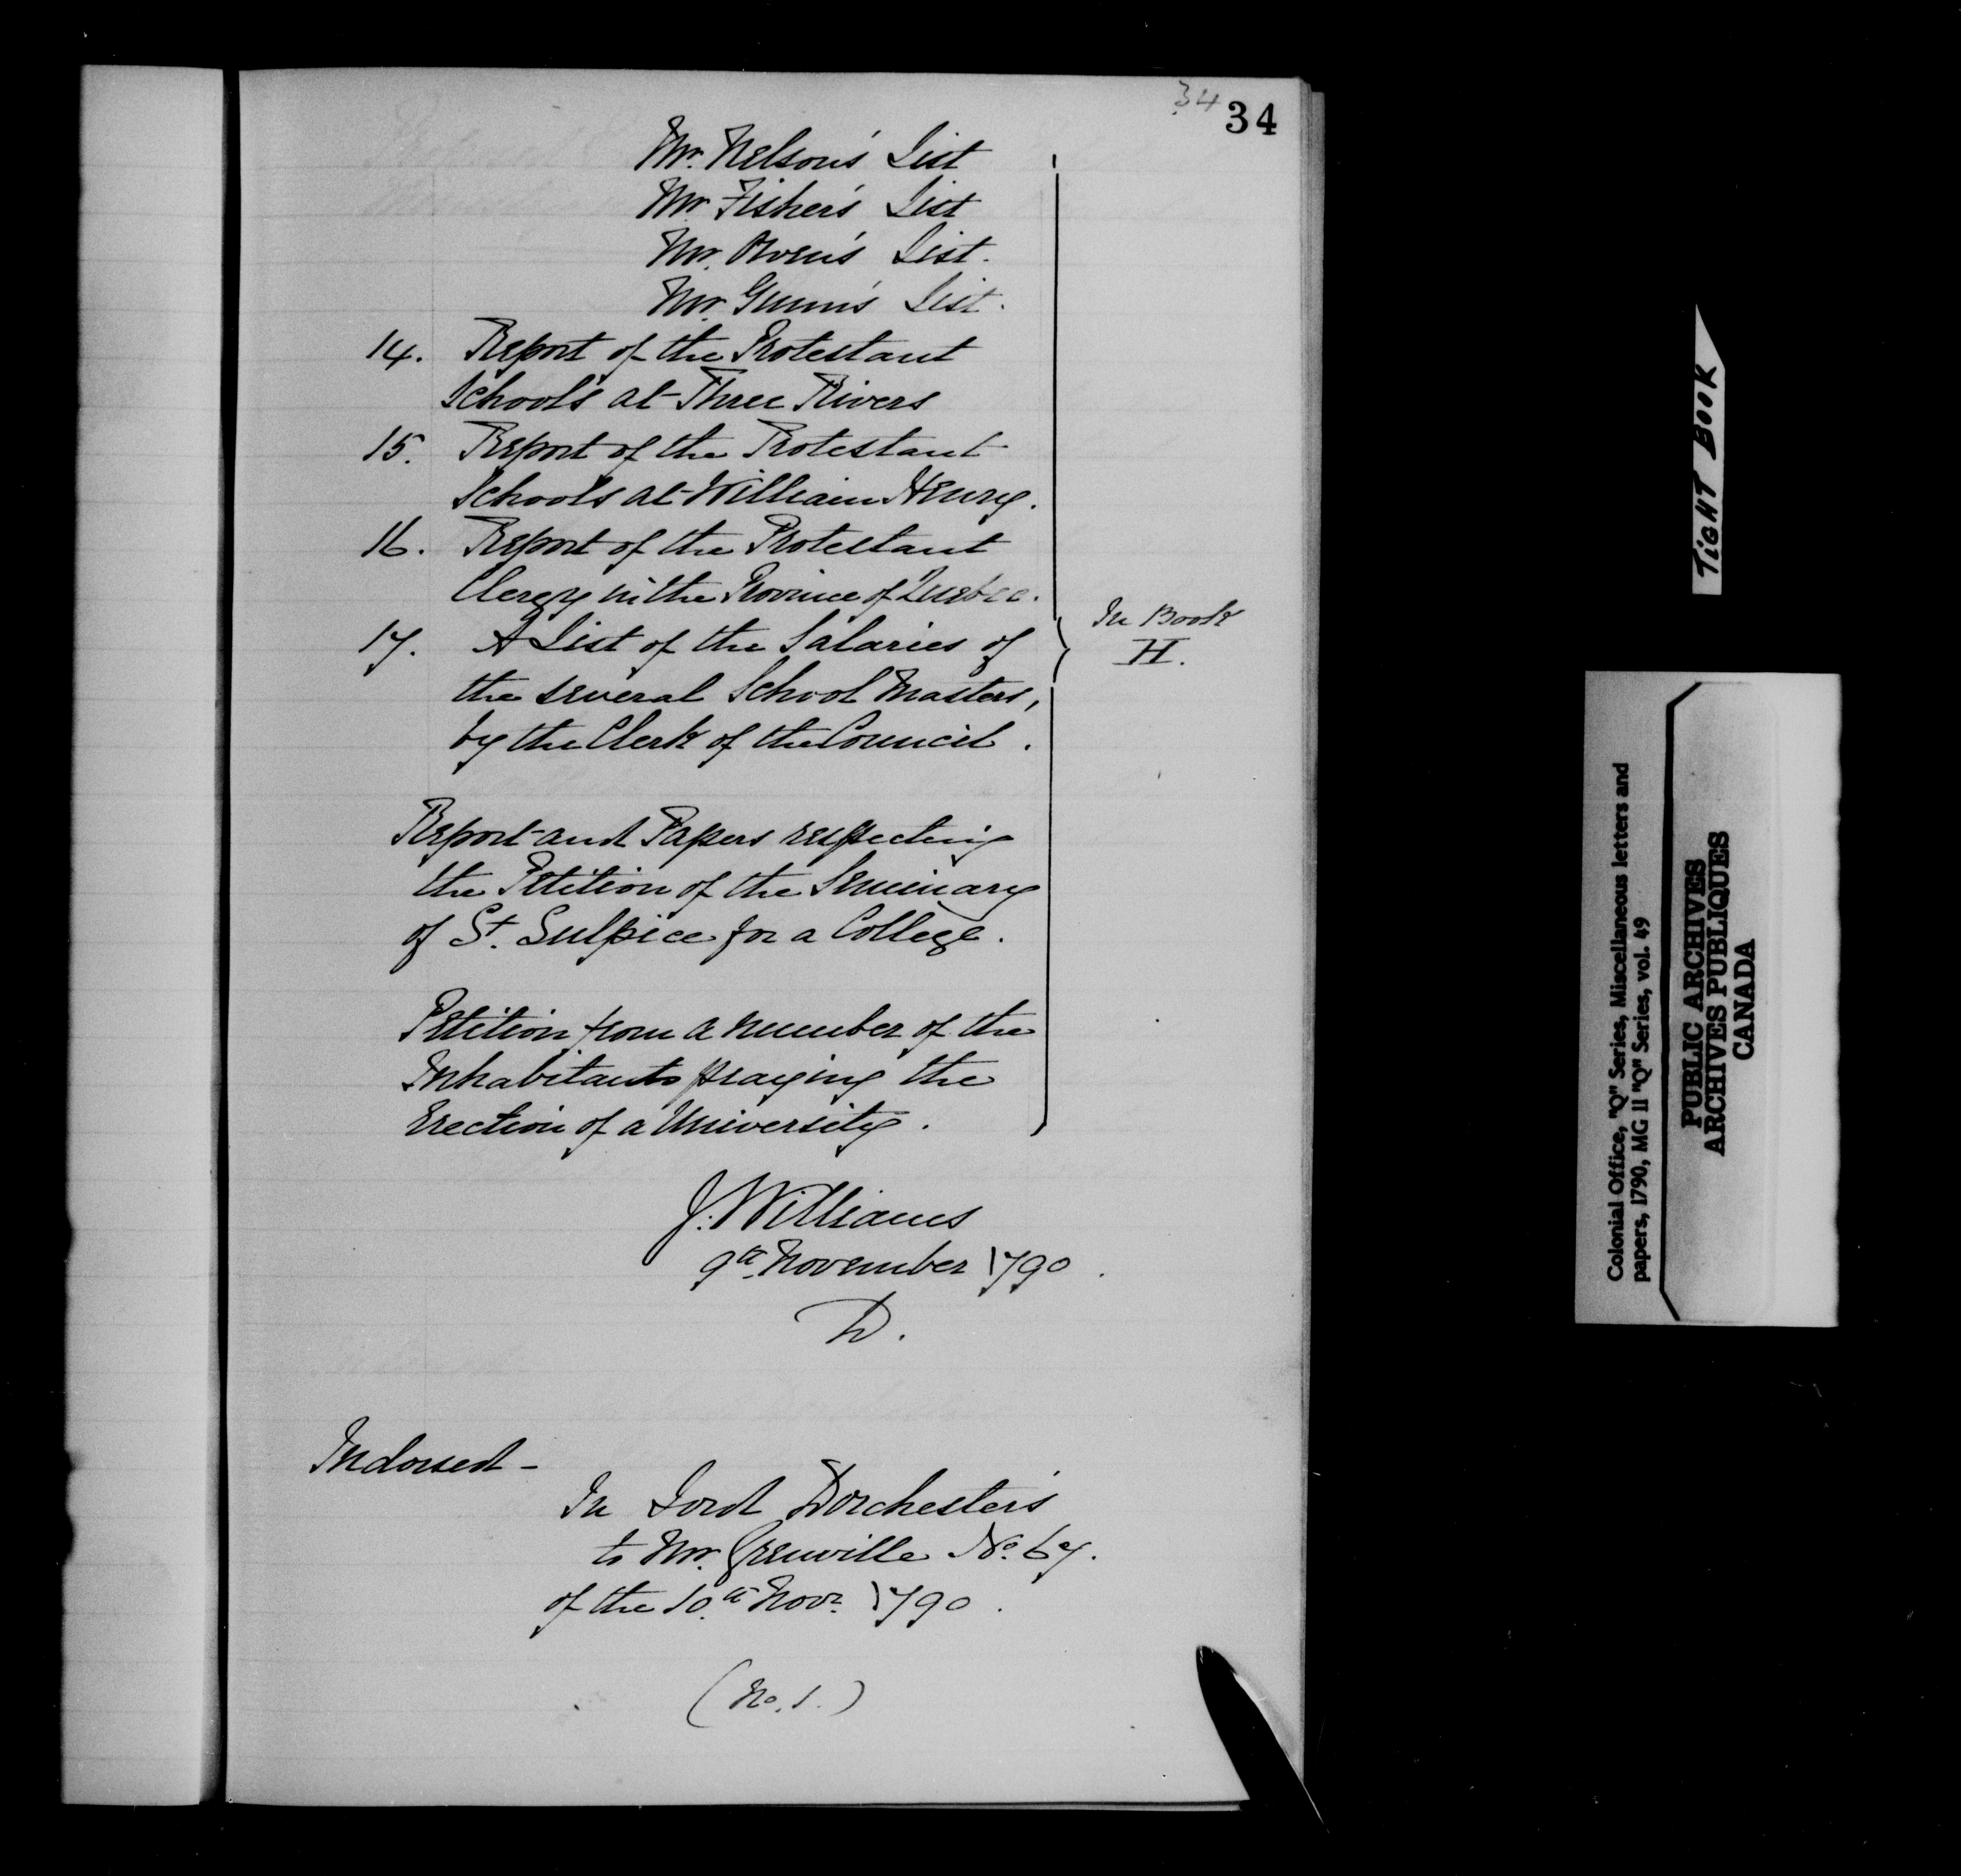 34 34
Mr. Nelson's List
Mr. Fisher's List
Mr. Owen's List.
Mr. Gunn's List.
14. Report of the Protestant
Schools at Three Rivers
15. Report of the Protestant
Schools at William Henry.
16. Report of the Protestant
Clergy in the Province of Quebec.
17. A List of the Salaries of
the several School Masters,
by the Clerk of the Council.
In Book
H.
Report and Papers respecting
the Petition of the Seminary
of St. Sulpice for a College.
Petition from a number of the
Inhabitants praying the
Erection of a University.
J. Williams
9th November 1790.
D.
Indorsed -
In Lord Dorchester's
to Mr. Grenville No. 67.
of the 10th Novr. 1790.
(No. 1.)
TIGHT BOOK
Colonial Office, "Q" Series, Miscellaneous letters and
papers, 1790, MG 11 "Q" Series, vol. 49
PUBLIC ARCHIVES
ARCHIVES PUBLIQUES
CANADA